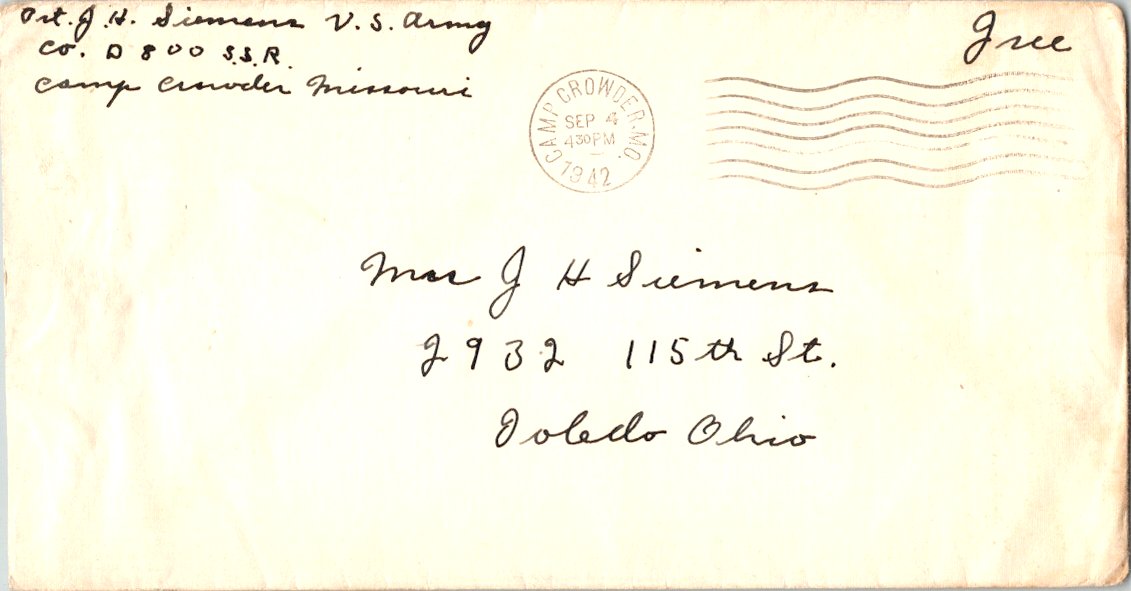 Pvt. J. H. Siemens U. S. Army
Co. D 800 S.S.R.
Camp Crowder Missouri
Free
CAMP CROWDER, MO.
SEP 4
430PM
1942
Mrs J H Siemens
2932 115th St.
Toledo Ohio